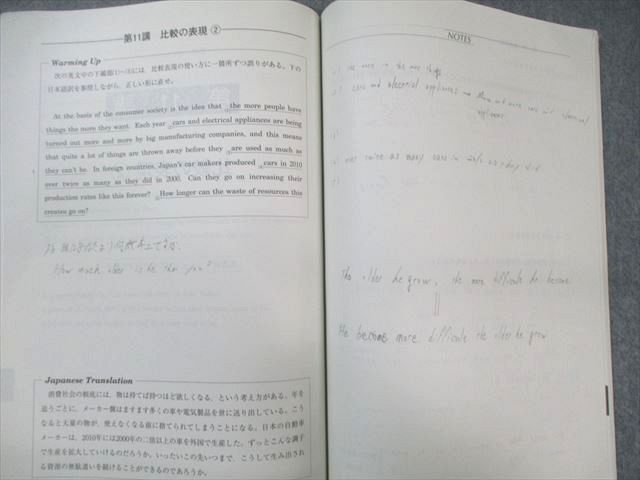 第11講 比較の表現 ②
Warming Up
次の英文中の下線部(1)～(5)には，比較表現の使い方に一箇所ずつ誤りがある。下の
日本語訳を参照しながら，正しい形に直せ。
At the basis of the consumer society is the idea that the more people have
things the more they want. Each year cars and electrical appliances are being
turned out more and more by big manufacturing companies, and this means
that quite a lot of things are thrown away before they are used as much as
they can't be. In foreign countries, Japan's car makers produced cars in 2010
over twice as many as they did in 2000. Can they go on increasing their
production rates like this forever? How longer can the waste of resources this
creates go on?
How much older is he than you?
Japanese Translation
消費社会の根底には，物は持てば持つほど欲しくなる，という考え方がある。年を
追うごとに，メーカー側はますます多くの車や電気製品を世に送り出している。こう
なると大量の物が，使えなくなる前に捨てられてしまうことになる。日本の自動車
メーカーは，2010年には2000年の二倍以上の車を外国で生産した。ずっとこんな調子
で生産を拡大していけるのだろうか。いったいこの先いつまで，こうして生み出され
る資源の無駄遣いを続けることができるのであろうか。
NOTES
the more in the more things
cars and electrical appliances → more and more cars and electrical
appliances
over twice as many cars in 2010 as they did
The older he grow, the more difficult he become
||
He become more difficult the older he grow